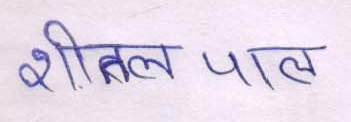 शीतल पाल